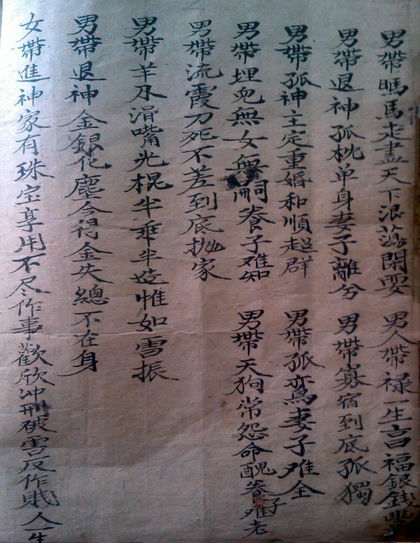 男帶馬走盡天下浪蕩閑耍 男人帶祿一生言福銀錢
男帶退神孤枕單身妻子離兮 男帶寡宿到底孤獨
男帶孤神主定重婚和順超群 男帶孤鸞妻子难全
男帶埋兒無女無嗣養子难知 男帶天狗常怨命醜養子难老
男帶流霞刀死不差到底抛家
男帶羊刃滑嘴光棍半乖半惟如雪振
男帶退神金銀化塵金失總不在身
女帶進神家有珠宝享用不尽作事歡欣冲刑被害反作贱人一生